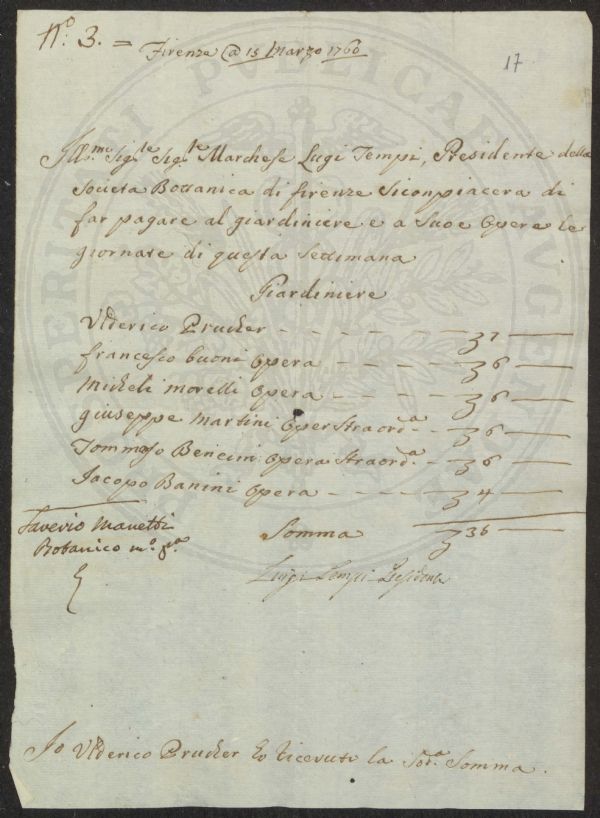 Nº. 3. =
Firenze @ 15 Marzo 1760
17
Ills.mo Sig.re Sig.re Marchese Lugi Tempi, Presidente della
Societa Bottanica di firenze Siconpiacera di
far pagare al giardiniere e a Suoe Opere le
giornate di questa Settimana
Giardiniere
Ulderico Prucker - - - - - - 7
francesco buoni Opera - - - - 6
Micheli morelli Opera - - - - 6
giuseppe Martini Oper Straord.a - 6
Tommaso Bencini Opera Straord.a - - 6
Jacopo Banini Opera - - - - 4
Saverio Manetti
Botanico m.o p.o
Somma 36
Luigi Tempi Presidente
Io Ulderico Prucker ho ricevuto la Sod.a Somma.
PERITATI PUBLICAE